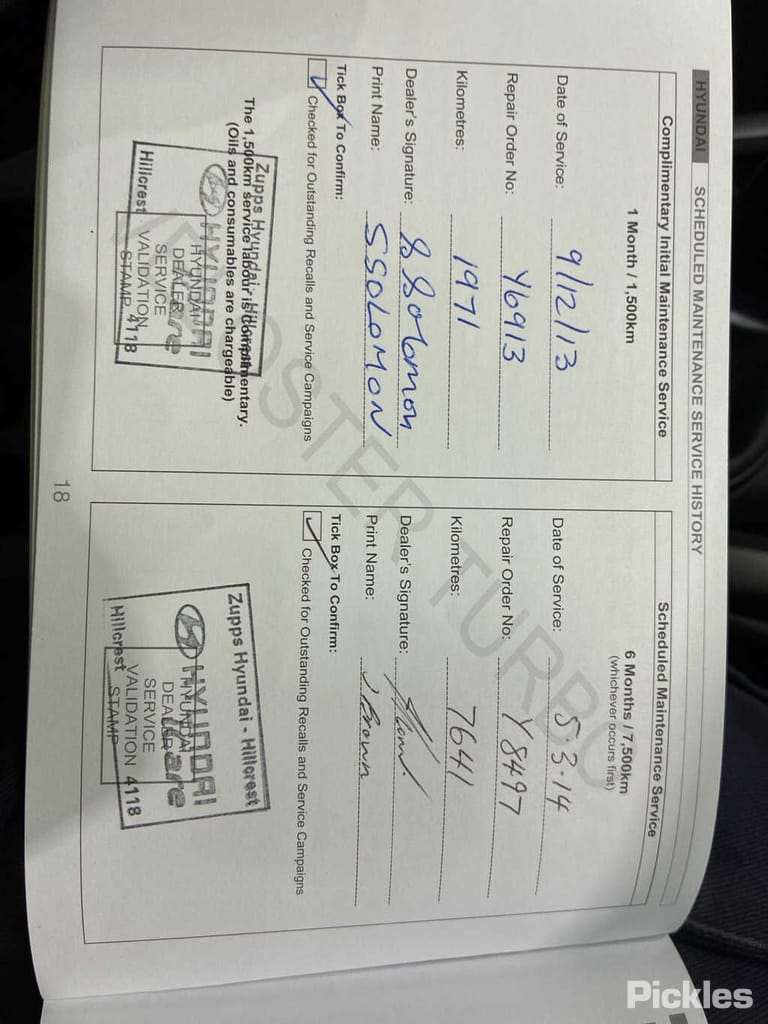 HYUNDAI SCHEDULED MAINTENANCE SERVICE HISTORY
Complimentary Initial Maintenance Service
1 Month / 1,500km
Date of Service: 9/12/13
Repair Order No: Y6913
Kilometres: 1971
Dealer's Signature: S Solomon
Print Name: S SOLOMON
Tick Box To Confirm:
Checked for Outstanding Recalls and Service Campaigns
The 1,500km service labour is complimentary.
(Oils and consumables are chargeable)
Zupps Hyundai - Hillcrest
HYUNDAI
iCare
Hillcrest 4118
HYUNDAI
DEALER
SERVICE
VALIDATION
STAMP
Scheduled Maintenance Service
6 Months / 7,500km
(whichever occurs first)
Date of Service: 5.3.14
Repair Order No: Y8497
Kilometres: 7641
Dealer's Signature:
Print Name: J Brown
Tick Box To Confirm:
Checked for Outstanding Recalls and Service Campaigns
Zupps Hyundai - Hillcrest
HYUNDAI
iCare
Hillcrest 4118
HYUNDAI
DEALER
SERVICE
VALIDATION
STAMP
VELOSTER TURBO
18
Pickles